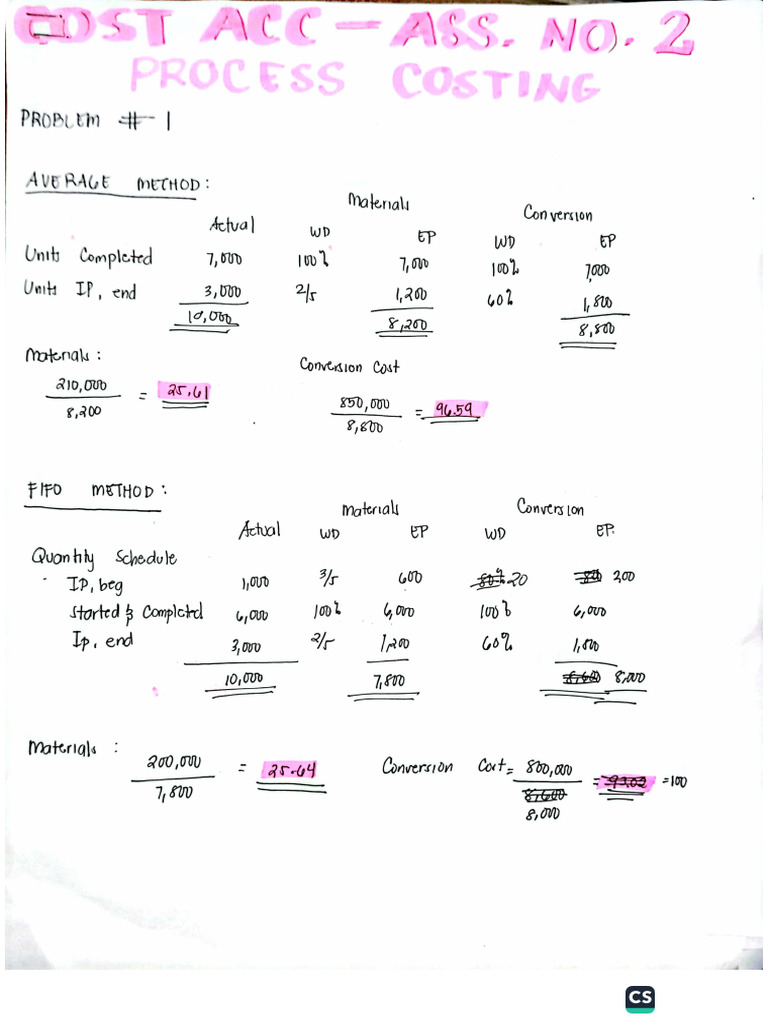 COST ACC - ASS. NO. 2
PROCESS COSTING
PROBLEM # 1
AVERAGE METHOD:
Materials Conversion
Actual WD EP WD EP
Units Completed 7,000 100% 7,000 100% 7,000
Units IP, end 3,000 2/5 1,200 60% 1,800
10,000 8,200 8,800
Materials: Conversion Cost
210,000 / 8,200 = 25.61 850,000 / 8,800 = 96.59
FIFO METHOD:
Materials Conversion
Actual WD EP WD EP.
Quantity Schedule
IP, beg 1,000 3/5 600 20 200
Started & Completed 6,000 100% 6,000 100% 6,000
Ip, end 3,000 2/5 1,200 60% 1,800
10,000 7,800 8,600 8,000
Materials: 200,000 / 7,800 = 25.64 Conversion Cost = 800,000 / 8,600 8,000 = 93.02 = 100
CS